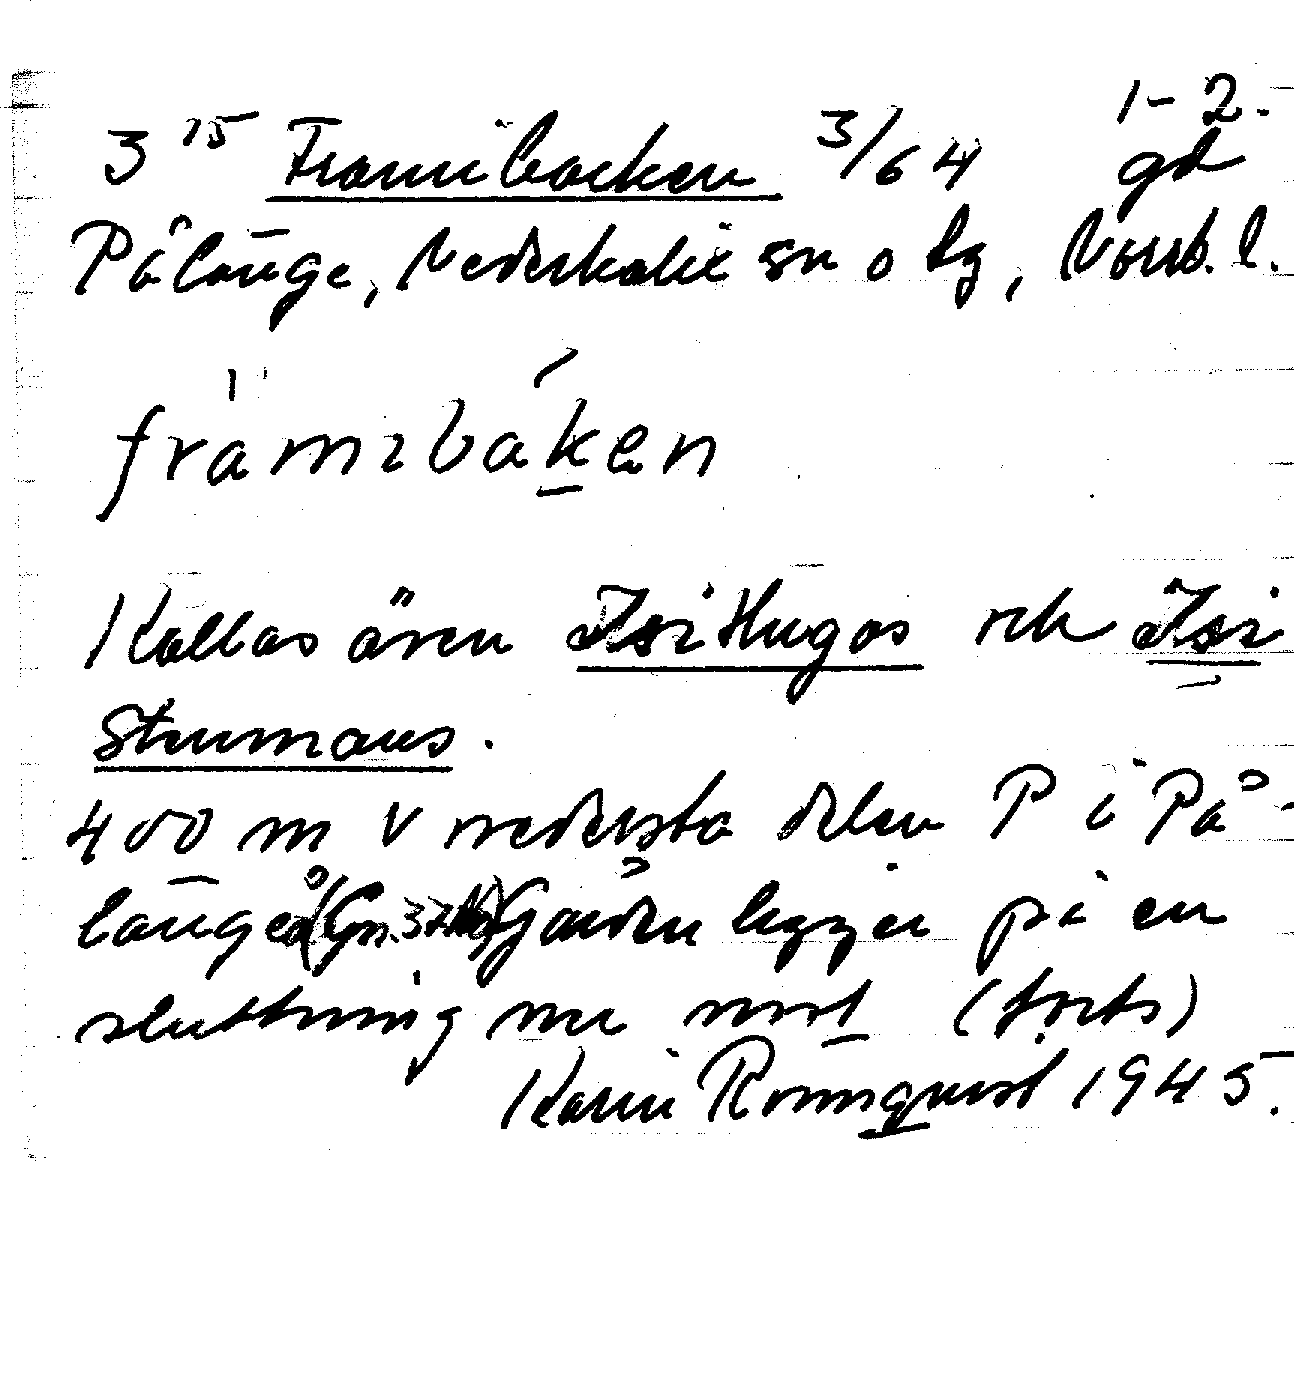 3 15 Frambacken 3/64 1-2. gd
Pålänge, Nederkalix sn o tg, Norrb. l.
främbáken
Kallas även Isi Hugos och Isi
Stenmans.
400 m V nedersta delen P i På-
länge Gården ligger på en
sluttning mu nord (forts)
Karin Rönnqvist 1945.